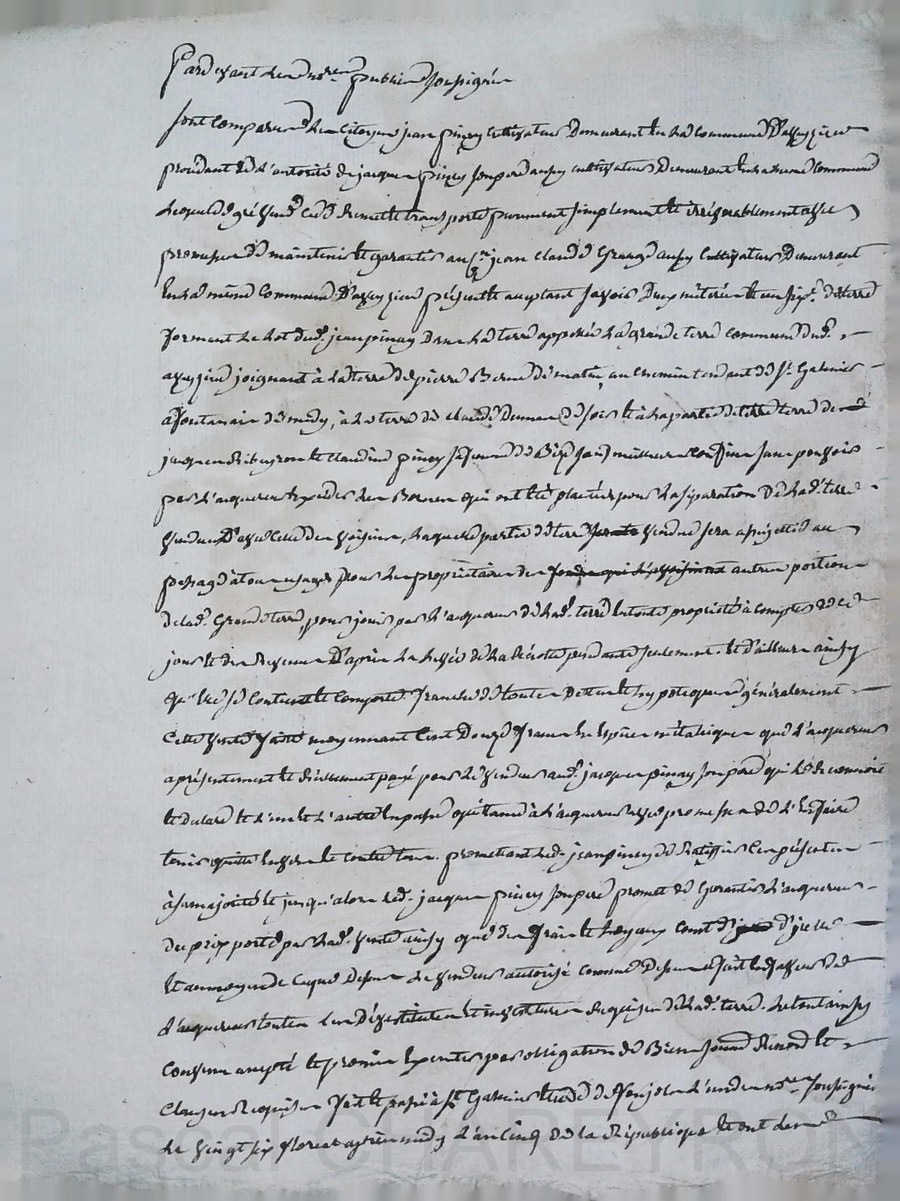 Pardevant les not.res publics soussignés
sont comparus les citoyens jean piney cultivateur demeurant en la commune d'aveyzieu
procédant de l'autorité de jacques piney son père aussy cultivateur demeurant en la meme commune
lequel de gré vend cède remet et transporte purement simplement et irrévocablement avec
promesse de maintenir et garantir au c.n jean claude Grange aussy cultivateur demeurant
en la même commune d'aveyzieu présent et acceptant savoir deux méterée et un de terre
formant le lot dud. jean pinay dans la terre appellée la grande terre commune dud.
aveyzieu joignant à la terre de pierre de matin, au chemin tendant de St. Galmier
à fontanes de midy, à la terre de claude de soir et à la partie de terre de
jacques et claudine piney sa femme de Bize sauf meilleurs confins sans pouvoir
par l'acquereur exceder les Bornes qui ont été placées pour la séparation de lad. terre
vendue d'avec celle des voisins, laquelle partie de terre vendue sera assujettie au
passage à tous usages pour les propriétaires des autres portions
de lad. Grande terre, pour jouir par l'acquereur de lad. terre en toute propriété à compter de ce
jour et des revenus d'après la levée de la récolte pendante seulement. et d'ailleurs ainsy
qu'elle se contient et comporte franche de toutes dettes et hypoteques généralement
Cette vente faite moyennant cent douze francs en espèces métalliques que l'acquereur
a présentement et réellement payé pour le vendeur aud. jacques pinay son père qui le reconnoit
et declare et l'un et l'autre en passent quittance à l'acquereur avec promesse de l'en faire
tenir quitte envers et contre tous. promettant led. jean piney de ratiffier ces présentes
à sa majorité et jusqu'alors led. jacques piney son père promet de Garantir l'acquereur
du prix porté par lad. vente ainsy que des frais et loyaux couts d'icelle
et au moyen de ce que dessus le vendeur autorisé comme dessus a fait en faveur de
l'acquereur toutes les dévestitures et investitures requises de lad. terre. le tout ainsy
convenu accepté et promis executer par obligation de Biens soumis renoncé et
clauses requises fait et passé à St Galmier etude de l'un des not.res soussignés
le vingt six floreal après midy l'an cinq de la République et ont les
Pascal CHAREYRON